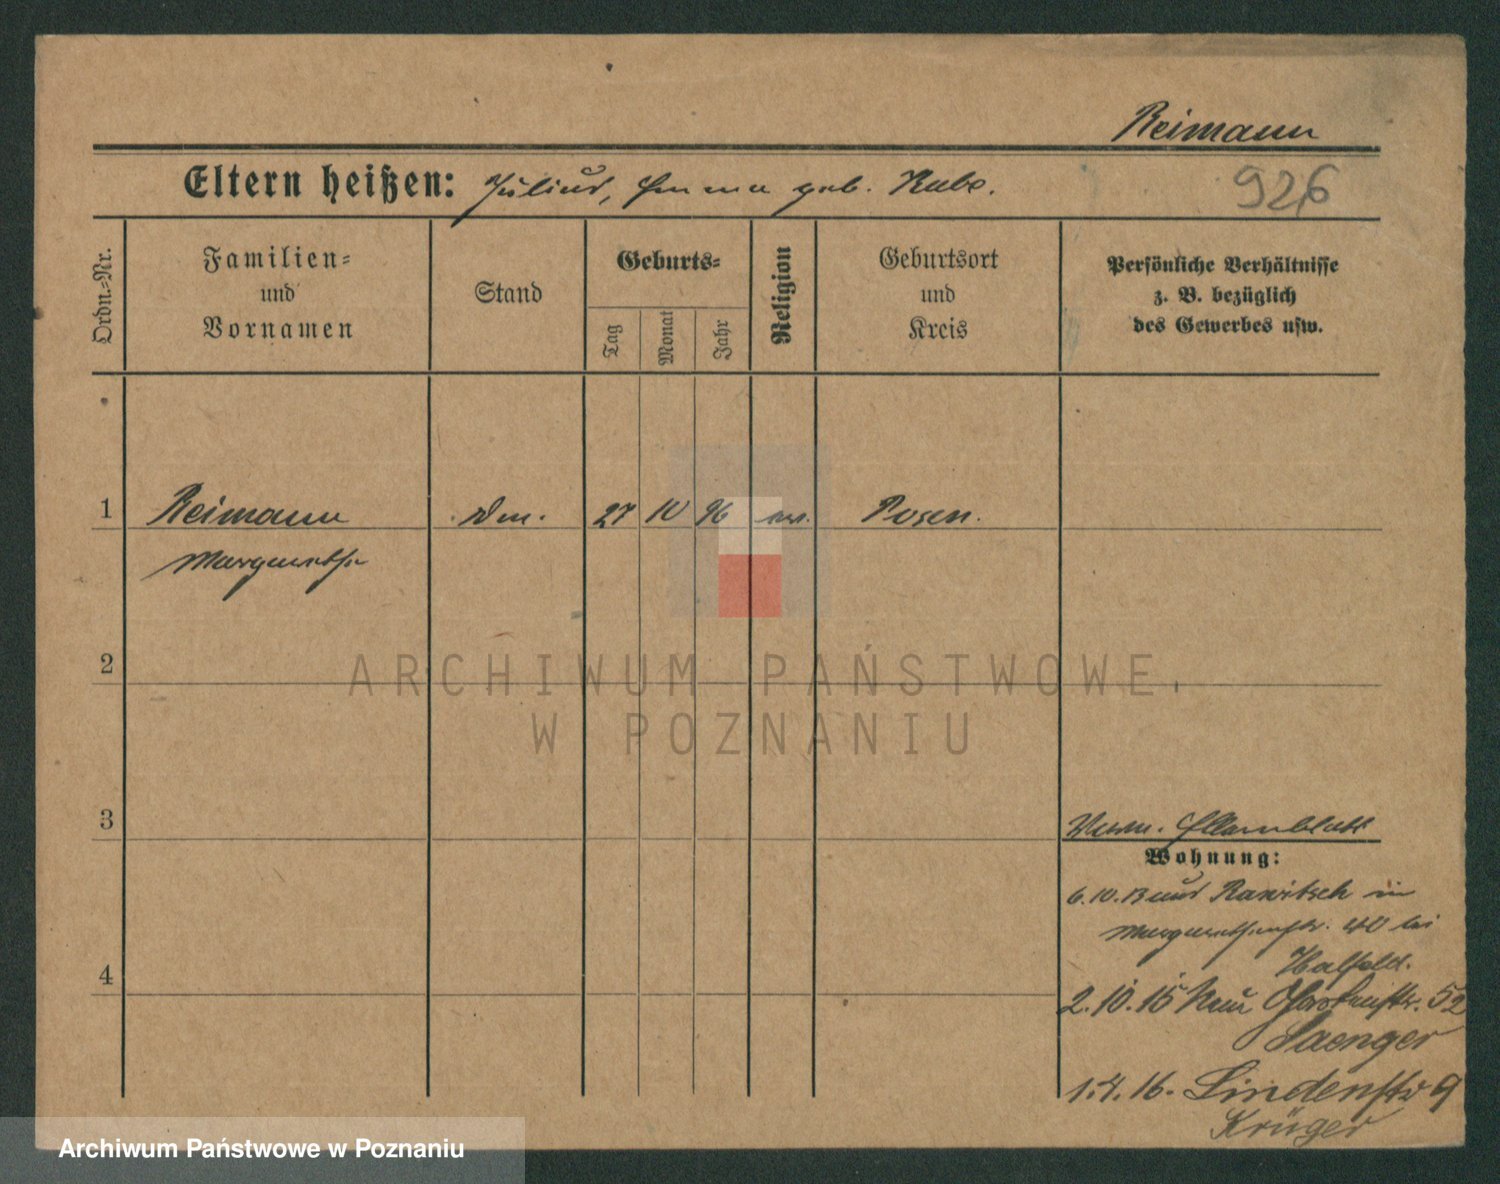 Reimann
Eltern heißen: Julius, Emma geb. Rabe.
926
Ordn.=Nr.
Familien=
und
Vornamen
Stand
Geburts=
Tag
Monat
Jahr
Religion
Geburtsort
und
Kreis
Persönliche Verhältnisse
z. B. bezüglich
des Gewerbes usw.
1
Reimann
27 10 96
Posen.
Margarethe
2
ARCHIWUM PAŃSTWOWE
W POZNANIU
3
Wohnung:
6.10.13 aus Rawitsch in
Margarethenstr. 40 bei
4
2.10.15 Neue Gartenstr. 52
Saenger
1.4.16. Lindenstr 9
Krüger
Archiwum Państwowe w Poznaniu